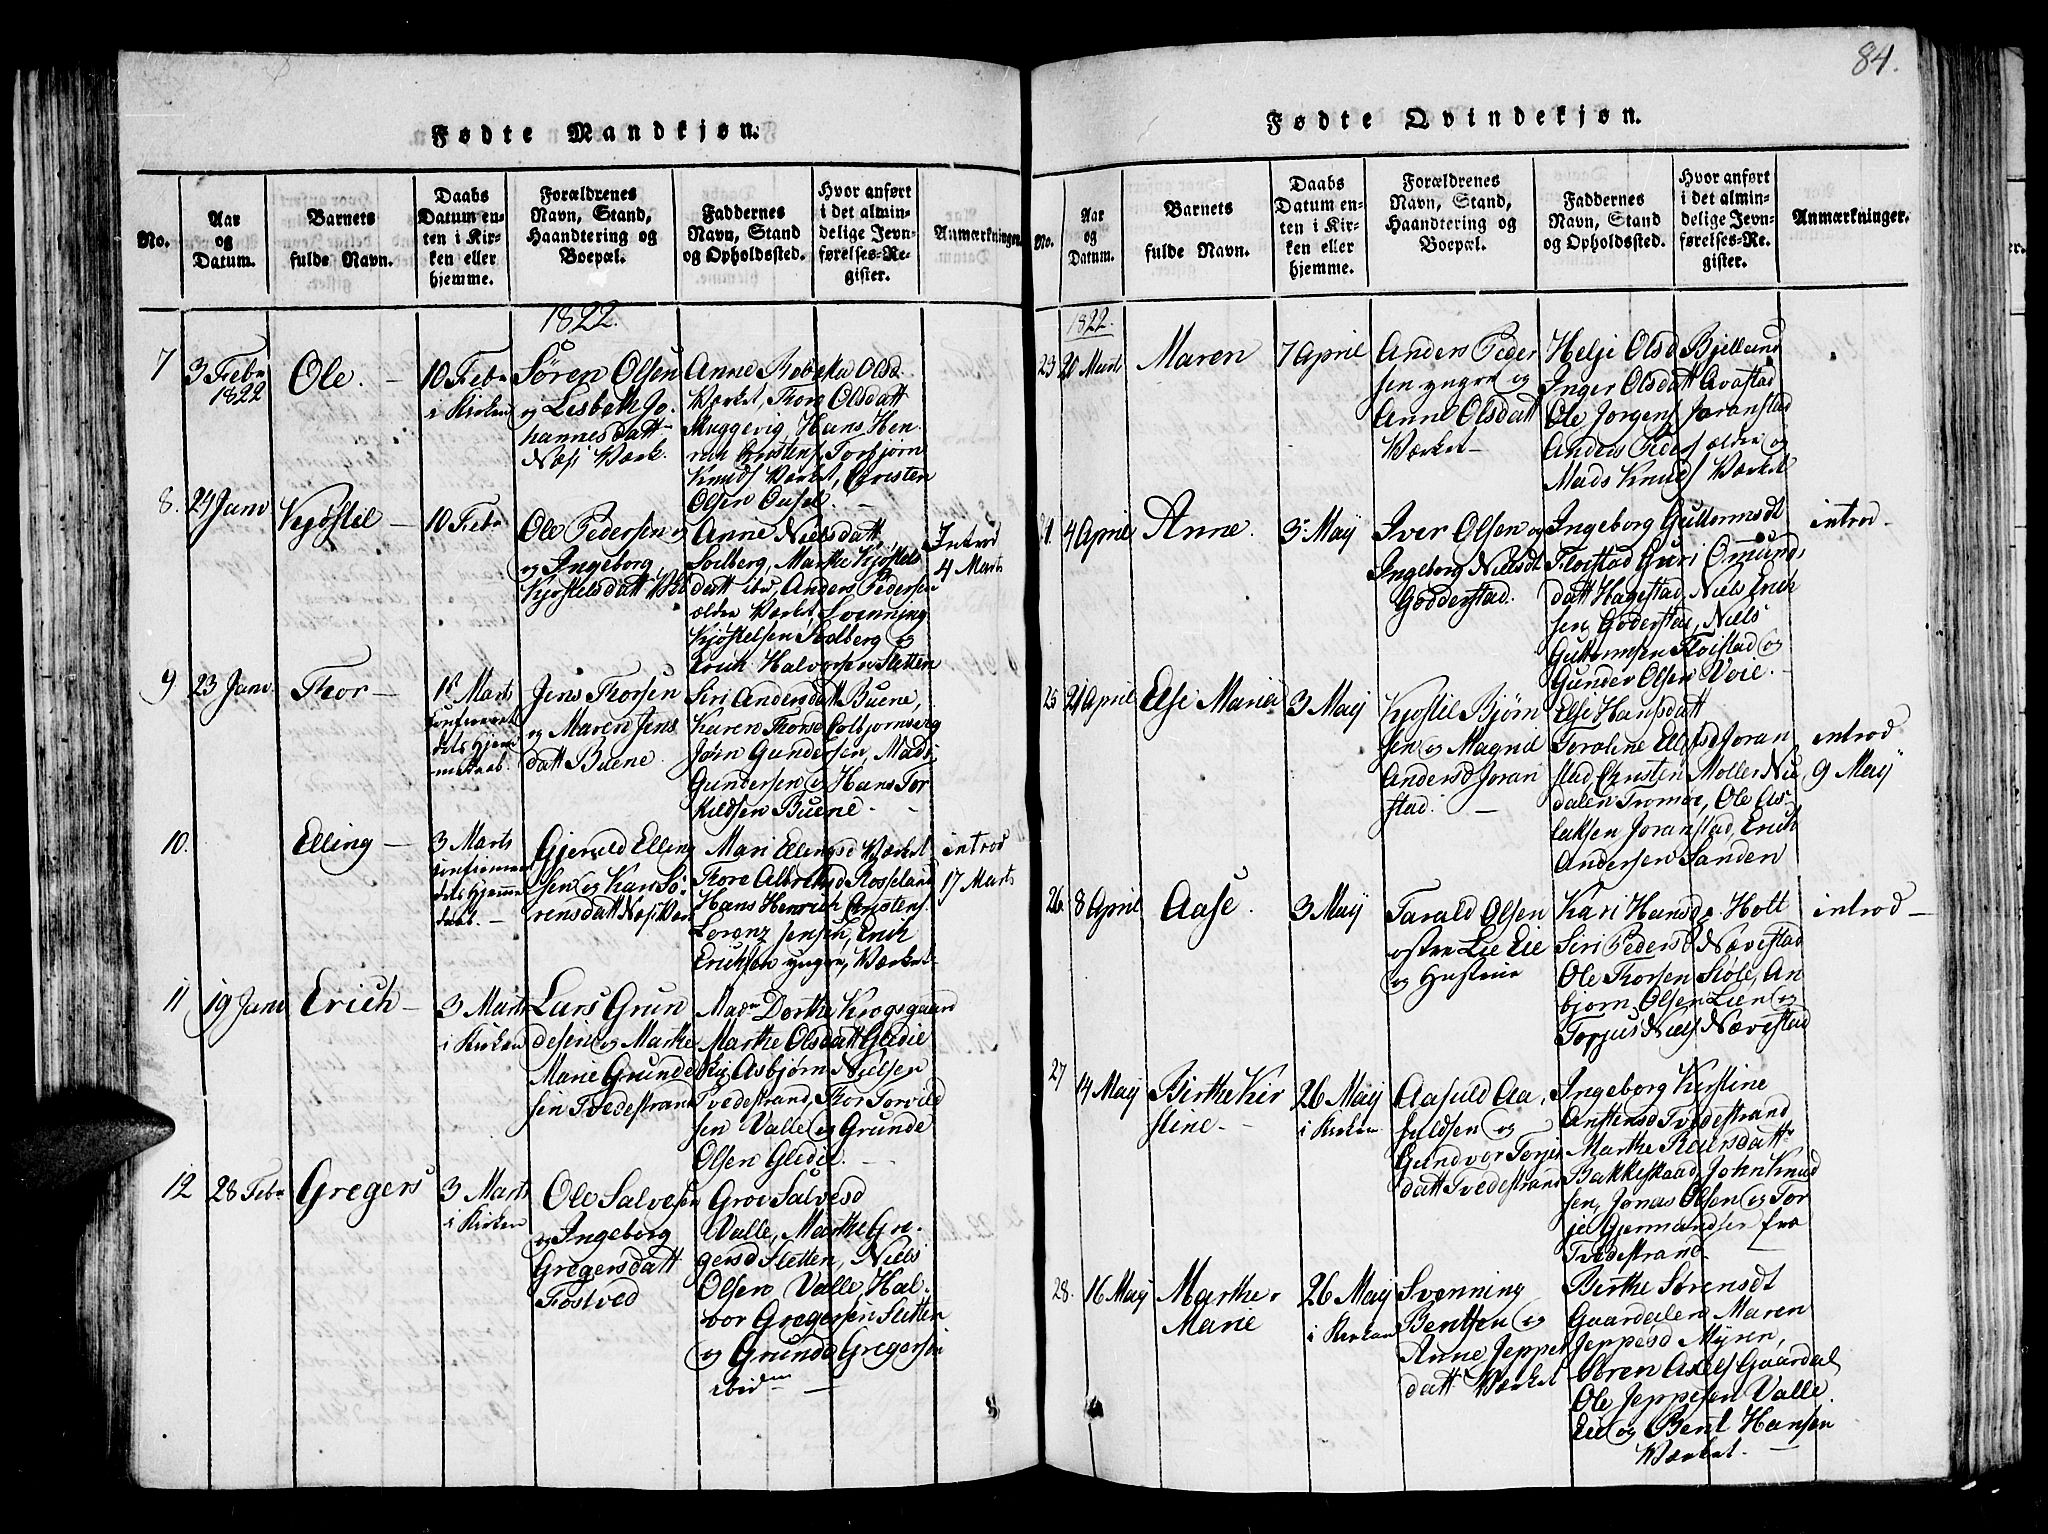 84.
Fødte Mandkjøn.
No.
Aar
og
Datum.
Barnets
fulde Navn.
Daabs
Datum en-
ten i Kir-
ken eller
hjemme.
Forældrenes
Navn, Stand,
Haandtering og
Boepæl.
Faddernes
Navn, Stand
og Opholdssted.
Hvor anført
i det almin-
delige Jevn-
førelses-Re-
gister.
Anmærkninger.
1822.
7
3 Febr
1822
Ole.
10 Febr
i Kirken
Søren Olsen
og Lisbeth Jo-
hannesdatt
Næs Værk.
Anne Olsd
Værket, Thore Olsdatt
Muggevig Hans Hen-
Torbjørn
Knuds Værket, Christen
Olsen
8.
24 Janv
Kjøstil
10 Febr
Ole Pedersen
og Ingeborg
Kjøstelsdatt
Anne Nielsdatt
Solberg, Marthe Kjøstels
datt ibid, Anders Pedersen
ældre Værket, Svenning
Kjøstelsen Solberg og
Erich Halvorsen Sletten
Introd
4 Marts
9
23 Janv.
Thor
1st Marts
Jens Thorsen
og Maren Jens
datt Buene.
Siri Andersdatt Buene,
Karen Thorsd Colbjørnsberg
Jørn Gundersen, Mads
Gundersen og Hans Tor
kildsen Buene
10.
Elling
3 Marts
Gjeruld Elling
sen og Kari Sø-
rensdatt Næs Værk
Mari Ellingsd Værket
Thore Albretsd Rosseland
Hans Henrich Christens.
Lorenz Jensen, Erich
Erichsen yngre, Værket
introd
17 Marts
11
19 Janv
Erich
3 Marts
i Kirken
Lars Grun
desen og Marthe
Marie Grunde
sen Tvedestrand
Madm Dorthe Krogsgaard
Marthe Olsdatt Gledie
Asbjørn Nielsen
Tvedestrand, Thor Torvild
sen Valle og Grunde
Olsen Gledie.
12
28 Febr
Gregers
3 Marts
i Kirken
Ole Salvesen
og Ingeborg
Gregersdatt
Fostved
Groe Salvesd
Valle, Marthe Gre-
gersd Sletten, Niels
Olsen Valle, Hal-
vor Gregersen Sletten
og Grunde Gregersen
ibidm
Fødte Qvindekjøn.
No.
Aar
og
Datum.
Barnets
fulde Navn.
Daabs
Datum en-
ten i Kir-
ken eller
hjemme.
Forældrenes
Navn, Stand,
Haandtering og
Boepæl.
Faddernes
Navn, Stand
og Opholdssted.
Hvor anført
i det almin-
delige Jevn-
førelses-Re-
gister.
Anmærkninger.
1822.
23
20 Marts
Maren
7 April
Anders Peder
sen yngre og
Anne Olsdatt
Værket
Helje Olsd Bjelland
Inger Olsdatt Avastad
Ole Jørgens Joranstad
Anders Peders ældre og
Mads Knuds Værket
4 April
Anne.
3. Maij
Iver Olsen og
Ingeborg Nielsdt
Godderstad.
Ingeborg Guttormsdt
Floistad Guri Omunds
datt Hagestad, Niels Erich
sen, Goderstad, Niels
Guttormsen Floistad og
Gunder Olsen Voie.
introd
25
21 April
Else Maria
3 Maij
Kjostil Bjørn
sen og Magnil
Andersd Joran
stad.
Else Hansdatt
Toroline Ellefsd Joran
stad Christen Moller Nie
dalen Tromøe, Ole As-
laksen Joranstad, Erich
Andersen Sanden
introd
9 Maij
26
8 April
Aase.
3 Maij
Tarald Olsen
østre Lie Eie
og Hustrue
Kari Hansd. Holt
Siri Pedersd Nævestad
Ole Thorsen Støle, An
bjørn Olsen Lien og
Torjus Niels Nævestad
introd
27
14 Maij
Birthe Kir
stine.
26 Maij
i Kirken
Aasuld Aa
suldsen og
Gundvor Torjes
datt Tvedestrand
Ingeborg Kirstine
Tvedestrand
Marthe Reiersdatt
Bakkeskaad, John Knud
sen, Jonas Olsen og Tor
je Gjermundsen fra
Tvedestrand.
28.
16 Maij
Marthe
Marie
26 Maij
i Kirken
Svenning
Bentsen og
Anne Jeppes
datt Værket
Birthe Sørensdt
Gaardalen Maren
Jeppesd Myren,
Søren Axels Gaardal
Ole Jeppesen Valle
Eie og Bent Hansen
Værket.